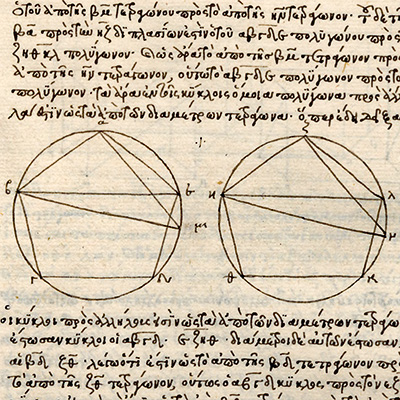 ἀπὸ τῆς βμ τετραγώνου πρὸς τὸ ἀπὸ τῆς ην τετράγωνον.
βα πρὸς τὴν ηζ διπλασίων ἐστὶ τοῦ αβγδε πολυγώνου πρὸς
ζηθκλ πολύγωνον. καὶ ὡς ἄρα τὸ ἀπὸ τῆς βμ τετράγωνον πρὸς
ἀπὸ τῆς ην τετράγωνον, οὕτω τὸ αβγδε πολύγωνον πρὸς τὸ
πολύγωνον. τὰ ἄρα ἐν τοῖς κύκλοις ὅμοια πολύγωνα πρὸς ἀλ
ληλά ἐστιν ὡς τὰ ἀπὸ τῶν διαμέτρων τετράγωνα. ὅπερ ἔδει δεῖξαι
α ζ
β ε η λ
μ
γ δ θ κ
οἱ κύκλοι πρὸς ἀλλήλους εἰσὶν ὡς τὰ ἀπὸ τῶν διαμέτρων τετράγω
ἔστωσαν κύκλοι οἱ αβγδ. εζηθ. διάμετροι δὲ αὐτῶν ἔστωσαν
αἱ βδ ζθ. λέγω ὅτι ἐστὶν ὡς τὸ ἀπὸ τῆς βδ τετράγωνον πρὸς
τὸ ἀπὸ τῆς ζθ τετράγωνον, οὕτως ὁ αβγδ κύκλος πρὸς τὸν εζ